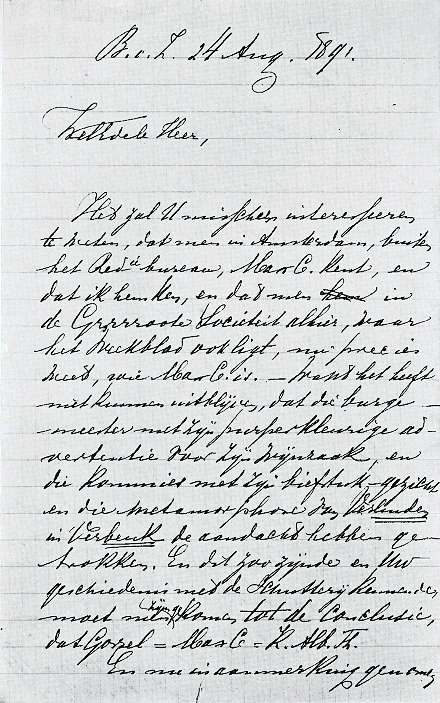 B. o. Z. 24 Aug. 1891.
WelEdele Heer,
Het zal U misschien interesseren
te weten, dat men in Amsterdam, buiten
het Redie bureau, Max C. kent, en
dat ik hem ken, en dat men hem in
de Grrrroote Sociëteit alhier, waar
het Weekblad ook ligt, nu precies
weet, wie Max C. is. — Want het heeft
niet kunnen uitblijven, dat die burge-
meester met zijn purperkleurige ad-
vertentie voor zijn wijnzaak, en
die kommies met zijn biefstuk-gezicht
en die metamorphose van Verlinden
in Verbeuk de aandacht hebben ge-
trokken. En dit zoo zijnde en Uw
geschiedenis met de Schutterij kennende,
moet men komen tot de Conclusie,
dat Gorzel = Max C = K. Alb. Th.
En nu in aanmerking genomen